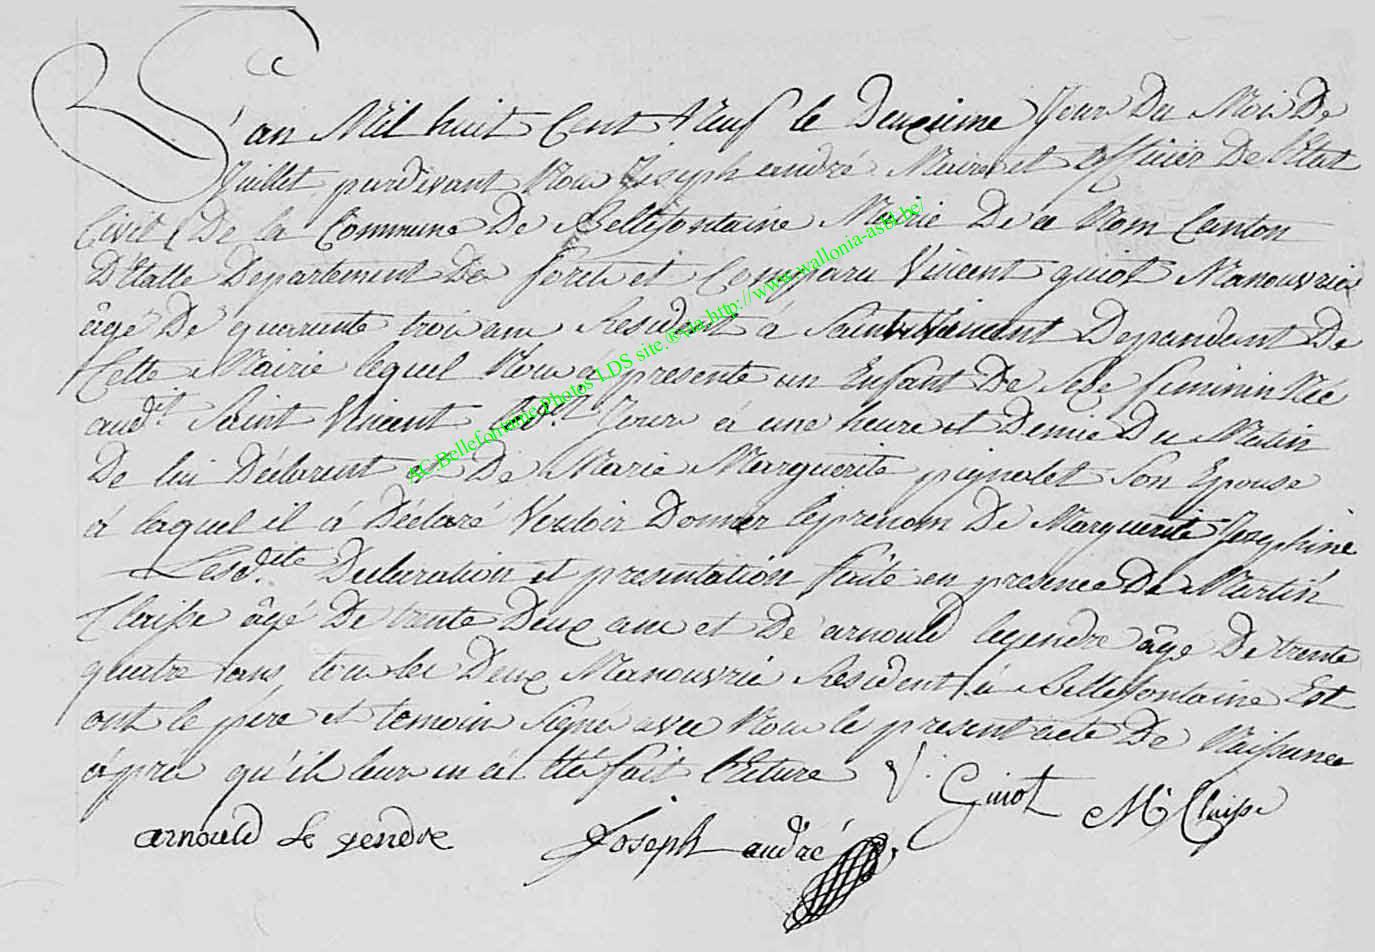 L'an Mil huit Cent Neuf le Deuxieme Jour Du Mois De
Juillet pardevant Nous Joseph andré Maire et officier De l'Etat
Civil De la Commune De Bellefontaine Mairie De ce Nom Canton
D'Etalle Departement De forets et Comparu Vincent guiot Manouvrier
âgé De quarente trois ans Resident á Saint Vincent Dependent De
Cette Mairie lequel Nous a présenté un Enfant De Sexe feminin Née
aud.it Saint Vincent Jour á une heure et Demie Du Matin
De lui Déclarant et De Marie Marguerite pignolet Son Epouse
á laquel il á Déclaré Vouloir Donner les prenom De Marguerite Josephine
Lesd.ite Declaration et presentation faite en presence De Martin
Clarisse âgé De trente Deux ans et De arnould legendre âgé De trente
quatre ans tous les Deux Manouvrié Resident á Bellefontaine Est
ont le pére et temoin Signe avec Nous le present acte De Naissance
áprés qu'il leur en á Eté fait lecture V. Guiot M Clarisse
arnould Le gendre Joseph andré
AC Bellefontaine Photos LDS site ® via http://www.wallonia-asbl.be/